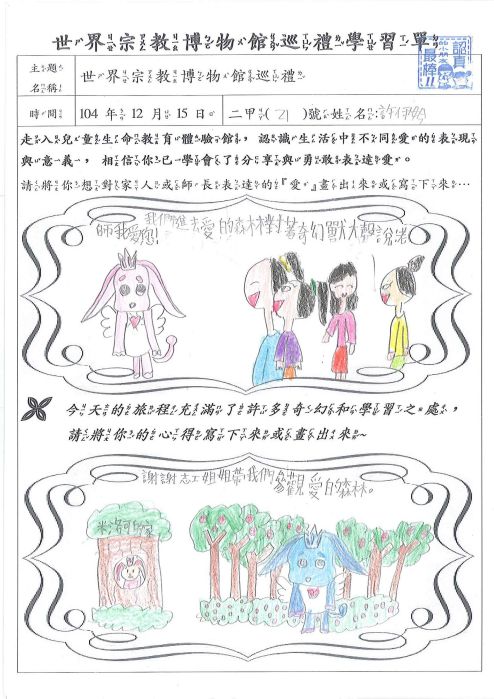 世界宗教博物館巡禮學習單
韶真
最棒!!
主題
名稱
世界宗教博物館巡禮
時間
104 年 12 月 15 日
二甲(21)號姓名:
走入兒童生命教育體驗館,認識生活中不同愛的表現
與意義,相信你已學會了分享與勇敢表達愛。
請將你想對家人或師長表達的『愛』畫出來或寫下來…
我們進去愛的森林對著奇幻獸大聲說
師我愛您!
今天的旅程充滿了許多奇幻和學習之處,
請將你的心得寫下來或畫出來~
謝謝志工姐姐帶我們參觀愛的森林。
米洛可的家